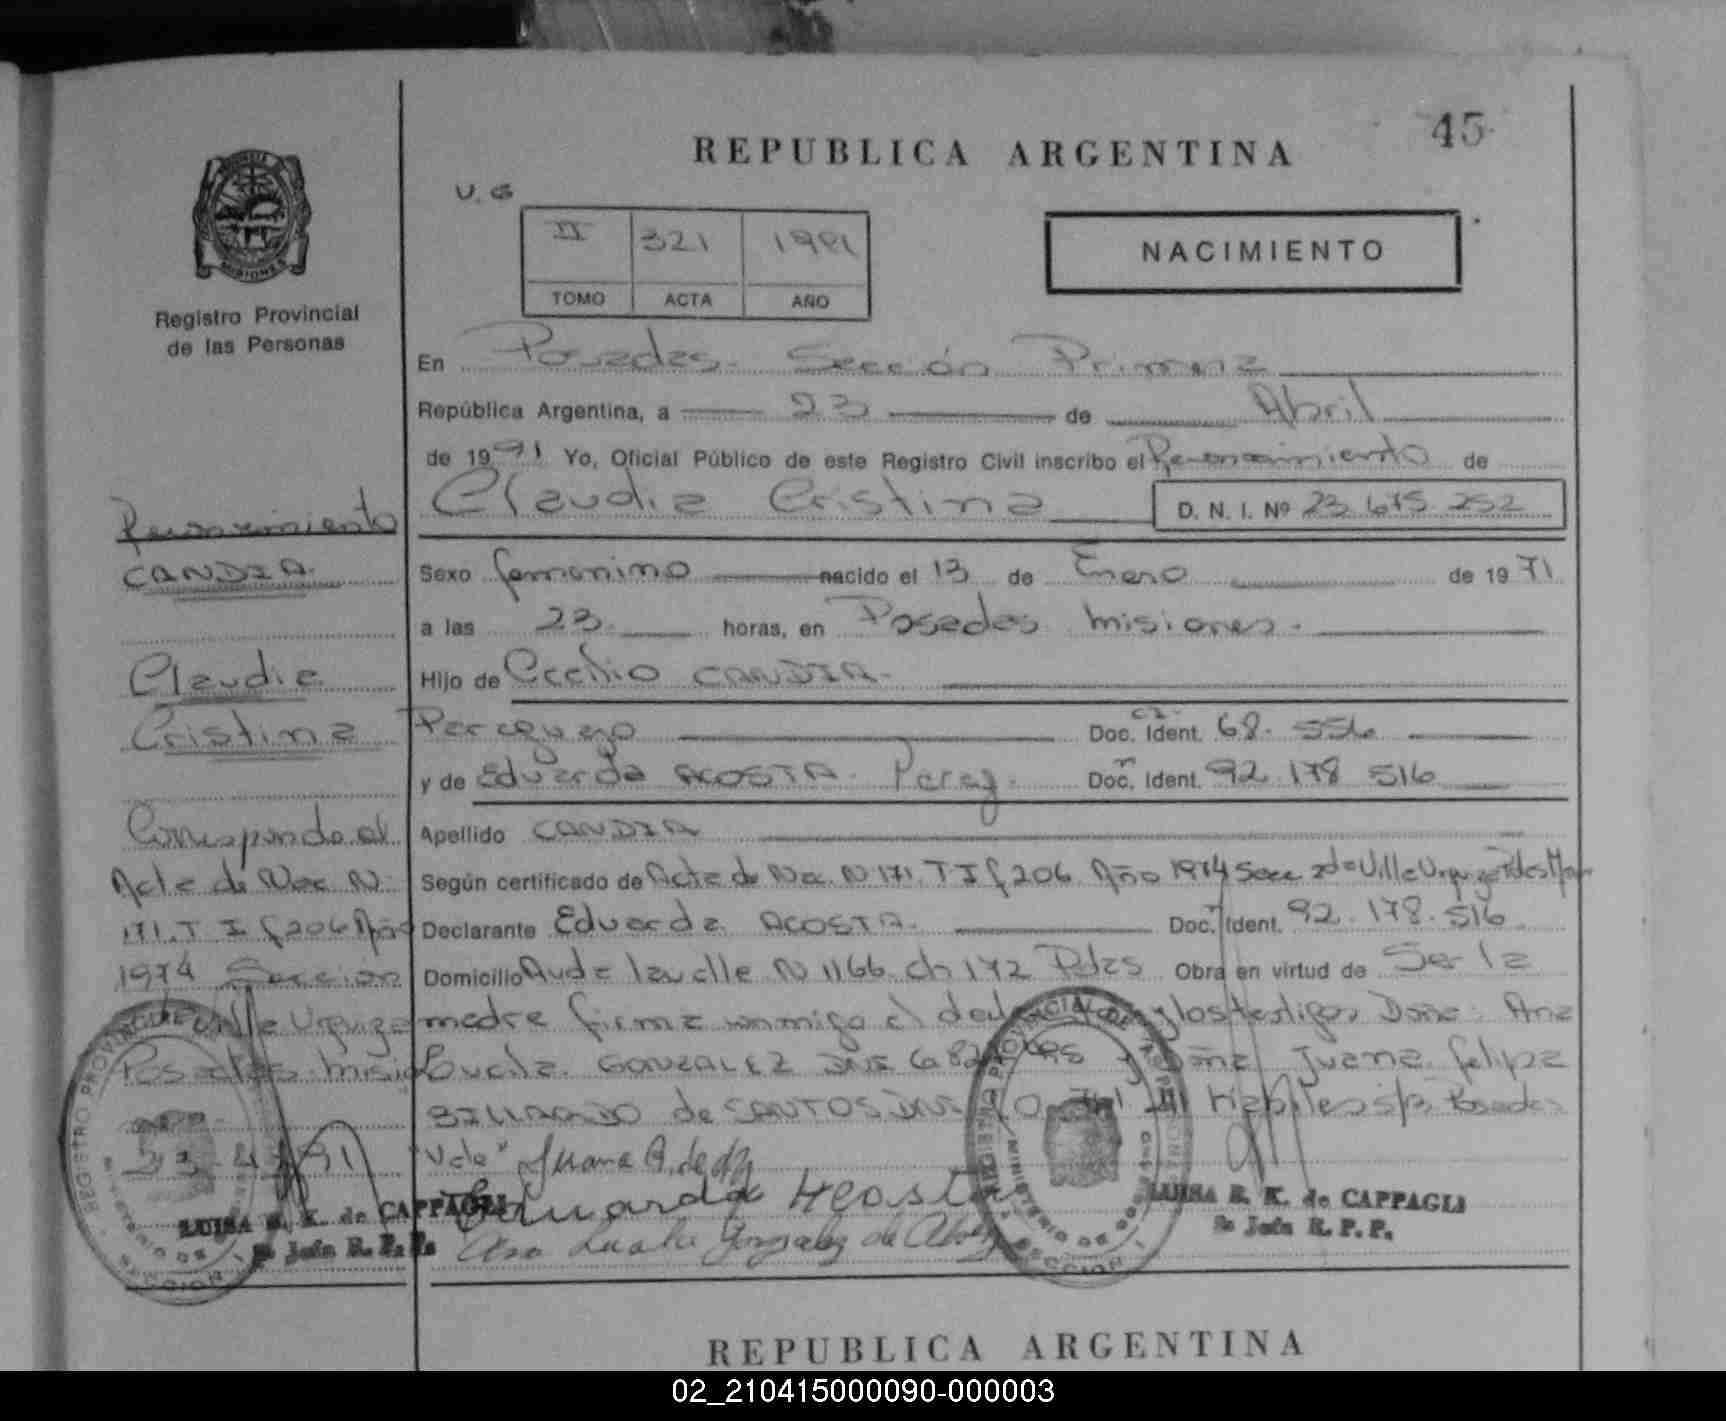 45
REPUBLICA ARGENTINA
V. G
II 321 1991
TOMO ACTA AÑO
NACIMIENTO
MISIONES
Registro Provincial
de las Personas
En Posadas. Sección Primera
República Argentina, a 23 de Abril
de 1991 Yo, Oficial Público de este Registro Civil inscribo el Reconocimiento de
Claudia Cristina D. N. I. Nº 23.675.252
Sexo femenino nacido el 13 de Enero de 1971
a las 23 horas, en Posadas Misiones.
Hijo de Cecilio CANDIA.
Paraguayo Doc. Ident. 68. 556
y de Eduarda ACOSTA. Parag. Doc. Ident. 92.178 516
Apellido CANDIA
Según certificado de Acta de Nac. N 171. T I f 206 Año 1974 Secc 2da Villa Urquiza Pdas
Declarante Eduarda ACOSTA. Doc. Ident. 92.178.516
Domicilio Avda Lavalle N 1166 ch 172 Pdas Obra en virtud de Ser la
madre firma conmigo el y los testigos Doña: Ana
Lucila GONZALEZ DNI y Doña Juana felipa
de SANTOS DNI hábiles s/p Posadas
"Vale" Juana
Eduarda Acosta
Ana Lucila Gonzalez de
LUISA R. K. de CAPPAGLI
Jefa R. P. P.
Reconocimiento
CANDIA.
Claudia
Cristina
Corresponde al
Acta de Nac N.
171. T I f 206 Año
1974 Sección
Villa Urquiza
Posadas. Misio
23-4-91
LUISA R. K. de CAPPAGLI
Jefa R. P. P.
REPUBLICA ARGENTINA
02_210415000090-000003